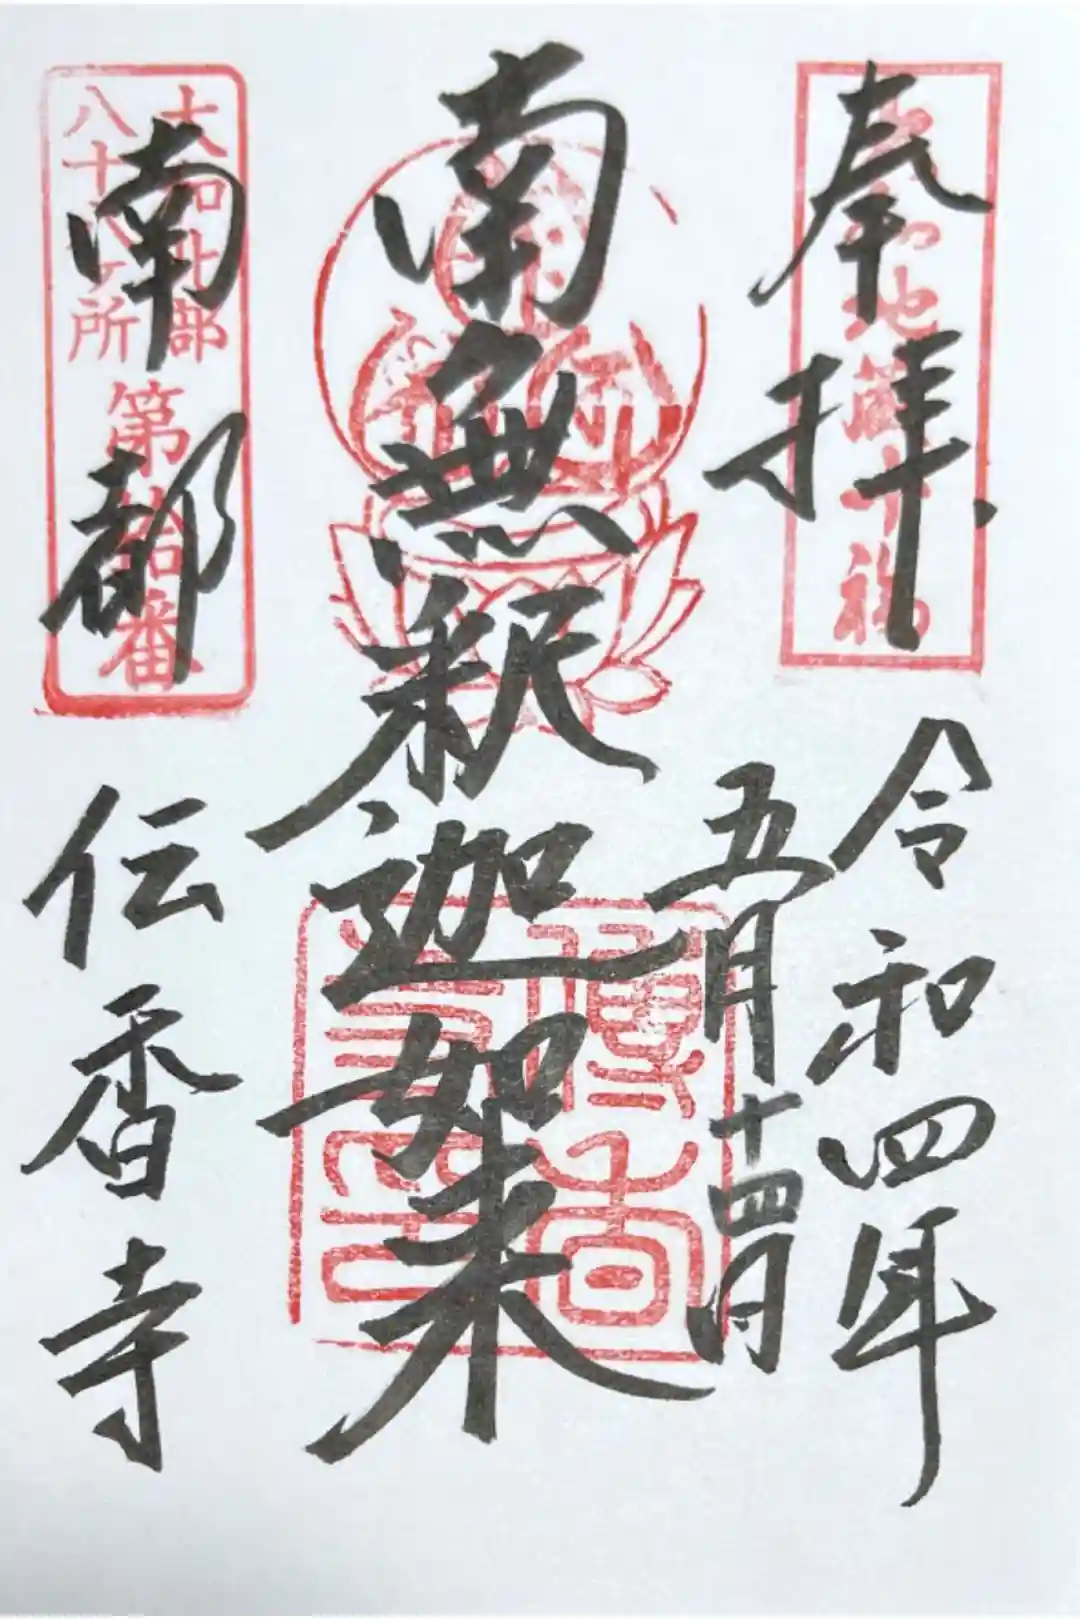 奉拝
令和四年
五月十四日
南無釈迦如来
南都
伝香寺
大和北部
八十八ヶ所
第拾番